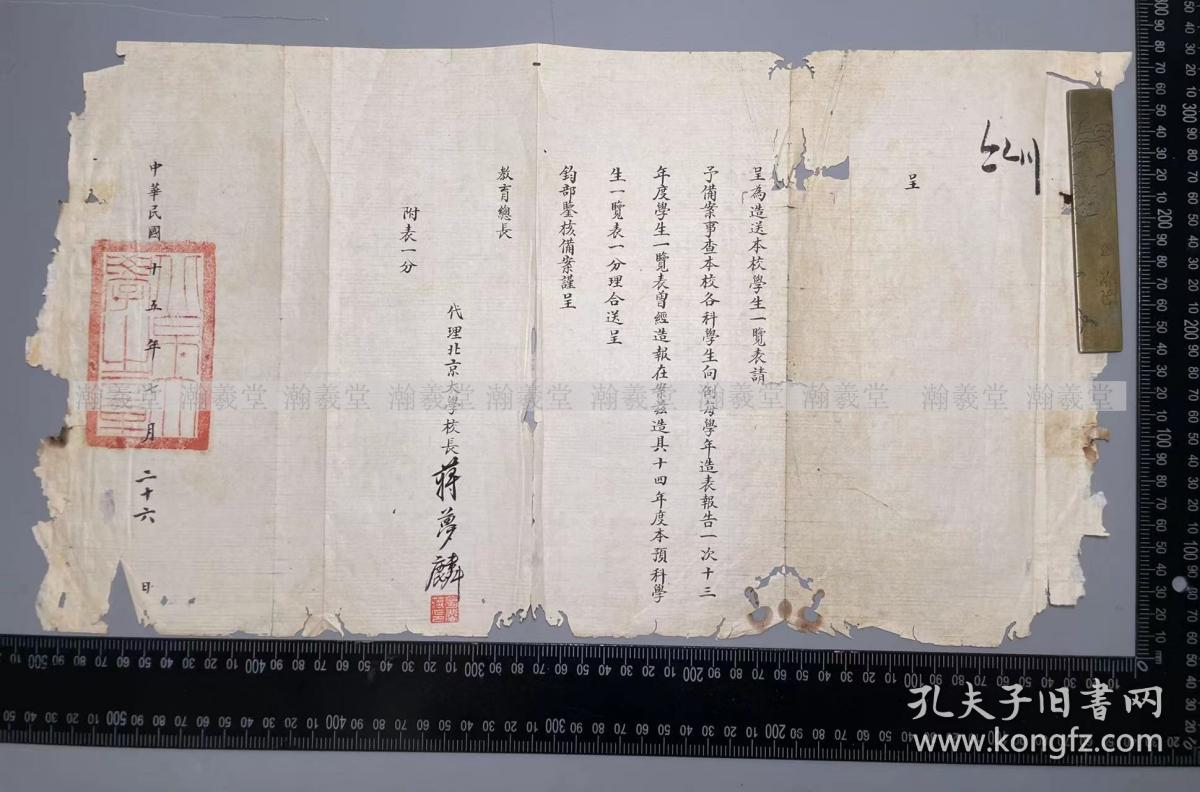 呈
呈為造送本校學生一覽表請
予備案事查本校各科學生向例每學年造表報告一次十三
年度學生一覽表曾經造報在案茲造具十四年度本預科學
生一覽表一分理合送呈
鈞部鑒核備案謹呈
教育總長
附表一分
代理北京大學校長蔣夢麟
中華民國十五年七月二十六日
瀚羲堂 瀚羲堂 瀚羲堂 瀚羲堂 瀚羲堂 瀚羲堂 瀚羲堂 瀚羲堂 瀚羲堂 瀚羲堂
孔夫子旧书网
www.kongfz.com